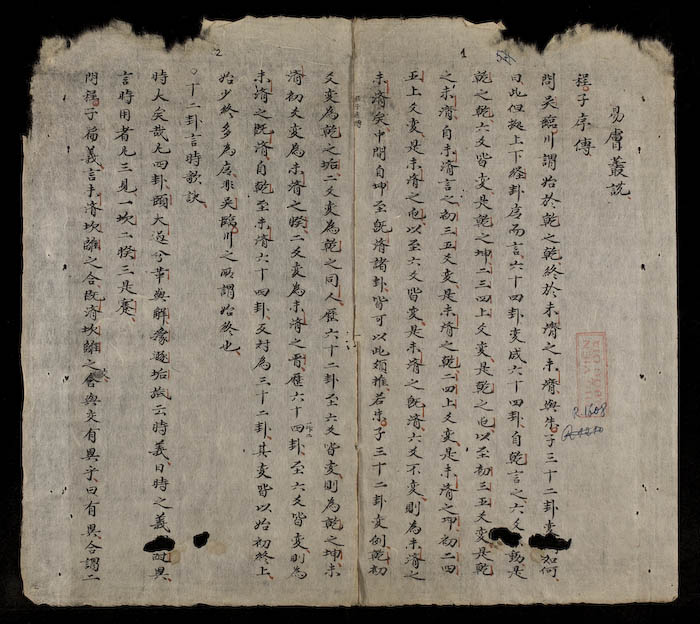 易膚叢說
程子序傳
問吳臨川謂始於乾之乾終於未濟之未濟與朱子三十二卦變如何
曰此但據上下經卦序而言六十四卦變成六十四卦自乾言之六爻動是
乾之乾六爻皆變是乾之坤二三四上爻變是乾之屯以至初三五爻變是乾
之未濟自未濟言之初三五爻變是未濟之乾二四上爻變是未濟之坤初二四
五上爻變是未濟之屯以至六爻皆變是未濟之既濟六爻不變則為未濟之
未濟矣中間自坤至既濟諸卦皆可以此類推若朱子三十二卦變倒乾初
爻變為乾之姤二爻變為乾之同人歷六十二卦至六爻皆變則為乾之坤未
濟初爻變為未濟之睽二爻變為未濟之晋歷六十四卦至六爻皆變則為
未濟之既濟自乾至未濟六十四卦反對為三十二卦其變皆以始初終上
始少終多為序非吳臨川之所謂始終也
○十二卦言時歌訣
時大矣哉凡四卦頤大過兮革與解豫遯姤旅云時義曰時之義隨可異
言時用者凡三見一坎二睽三是蹇
問程子傳義言未濟坎離之合既濟坎離之會與交有異乎曰有異合謂二
1
2
R.1608